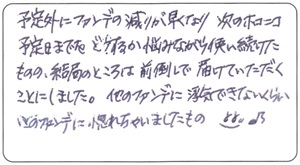 予定外にファンデの減りが早くなり 次のホコニコ
予定日までを どうするか悩みながら使い続けた
ものの、結局のところは 前倒しで 届けていただく
ことにしました。他のファンデに 浮気できないくらい
このファンデに 惚れちゃいましたもの ♪